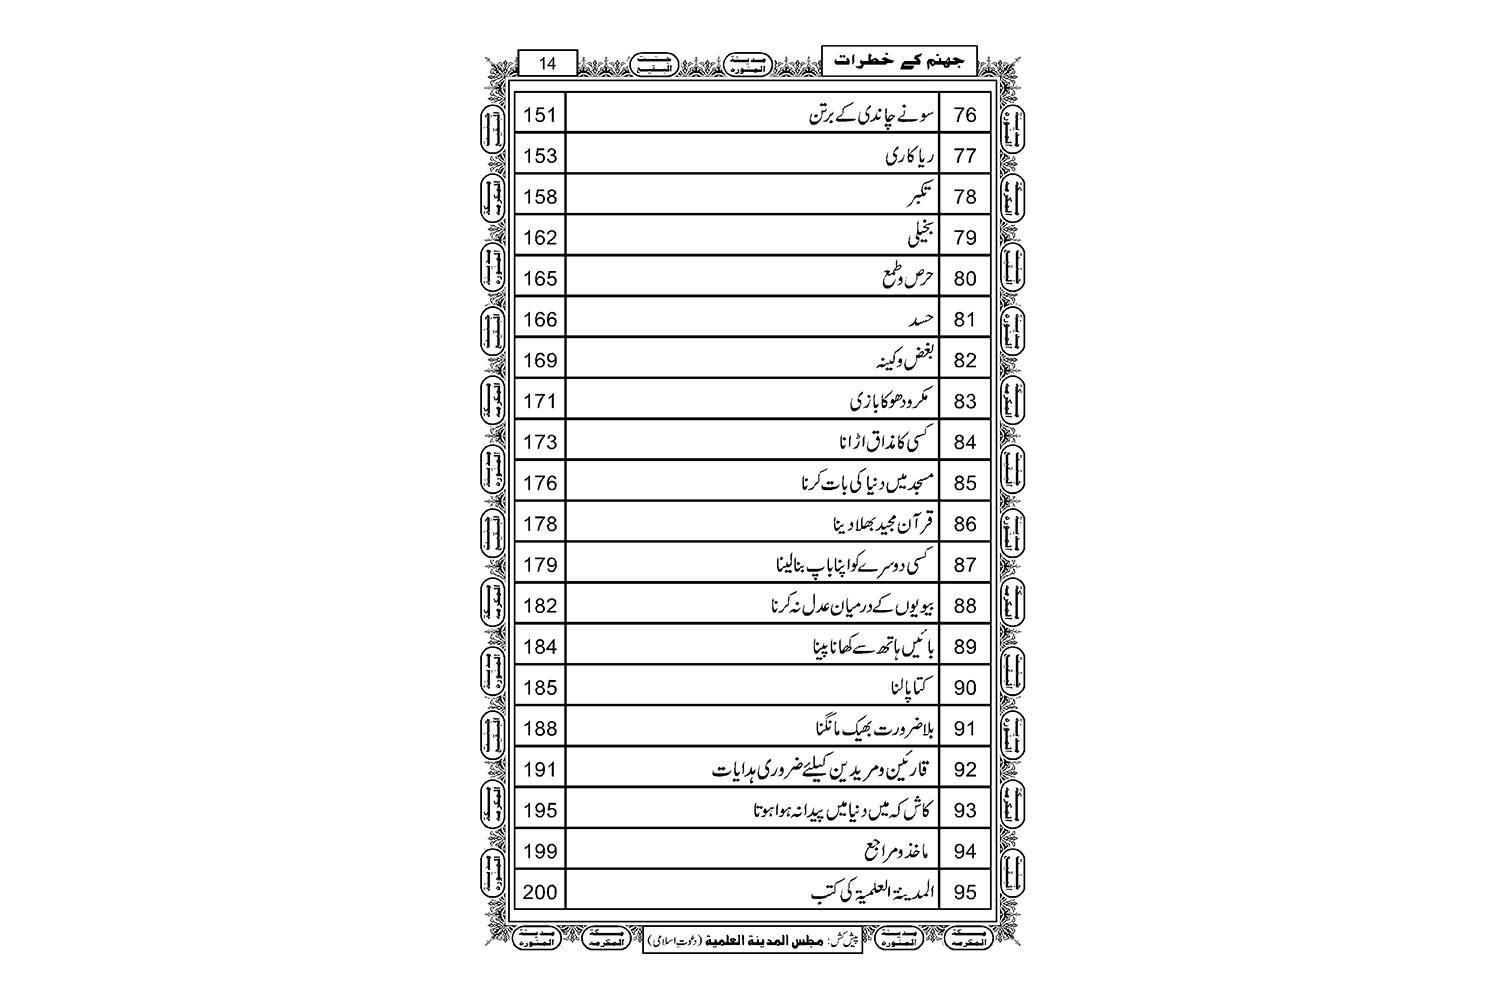 جهنم کے خطرات
مدينة المنوره
جنت البقيع
14
76 سونے چاندی کے برتن 151
77 ریا کاری 153
78 تکبر 158
79 بخیلی 162
80 حرص و طمع 165
81 حسد 166
82 بغض و کینہ 169
83 مکر و دھوکا بازی 171
84 کسی کا مذاق اڑانا 173
85 مسجد میں دنیا کی بات کرنا 176
86 قرآن مجید بھلا دینا 178
87 کسی دوسرے کو اپنا باپ بنالینا 179
88 بیویوں کے درمیان عدل نہ کرنا 182
89 بائیں ہاتھ سے کھانا پینا 184
90 کتا پالنا 185
91 بلاضرورت بھیک مانگنا 188
92 قارئین و مریدین کیلئے ضروری ہدایات 191
93 کاش کہ میں دنیا میں پیدا نہ ہوا ہوتا 195
94 ماخذ و مراجع 199
95 المدینۃ العلمیۃ کی کتب 200
مكة المكرمه
مدينة المنوره
پیش کش: مجلس المدينة العلمية (دعوتِ اسلامی)
مكة المكرمه
مدينة المنوره